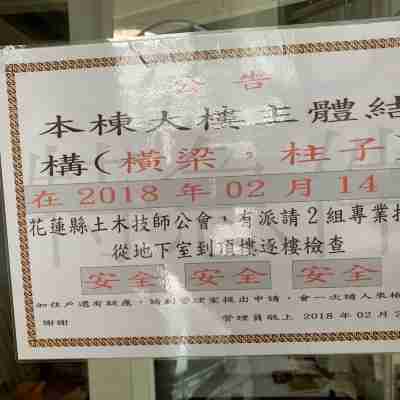 公告
本棟大樓主體結
構(橫梁，柱子)
在2018年02月14
花蓮縣土木技師公會，有派請2組專業技
從地下室到頂樓逐樓檢查
安全 安全 安全
如住戶還有疑慮，請到管理室提出申請，會一次請人來檢
謝謝 管理員敬上 2018年02月2